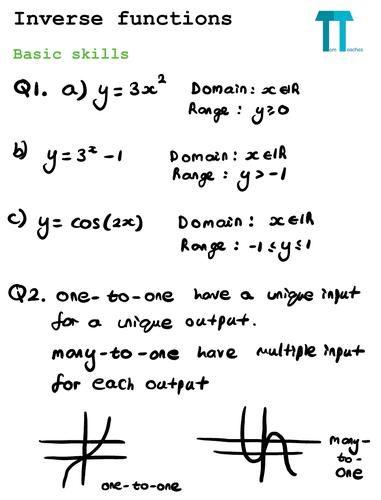 Inverse functions
TT
Tom Teaches
Basic skills
Q1. a) y = 3x² Domain: x ∈ ℝ
Range: y ≥ 0
b) y = 3ˣ - 1 Domain: x ∈ ℝ
Range: y > -1
c) y = cos(2x) Domain: x ∈ ℝ
Range: -1 ≤ y ≤ 1
Q2. one-to-one have a unique input
for a unique output.
many-to-one have multiple input
for each output
one-to-one
many-
to-
one